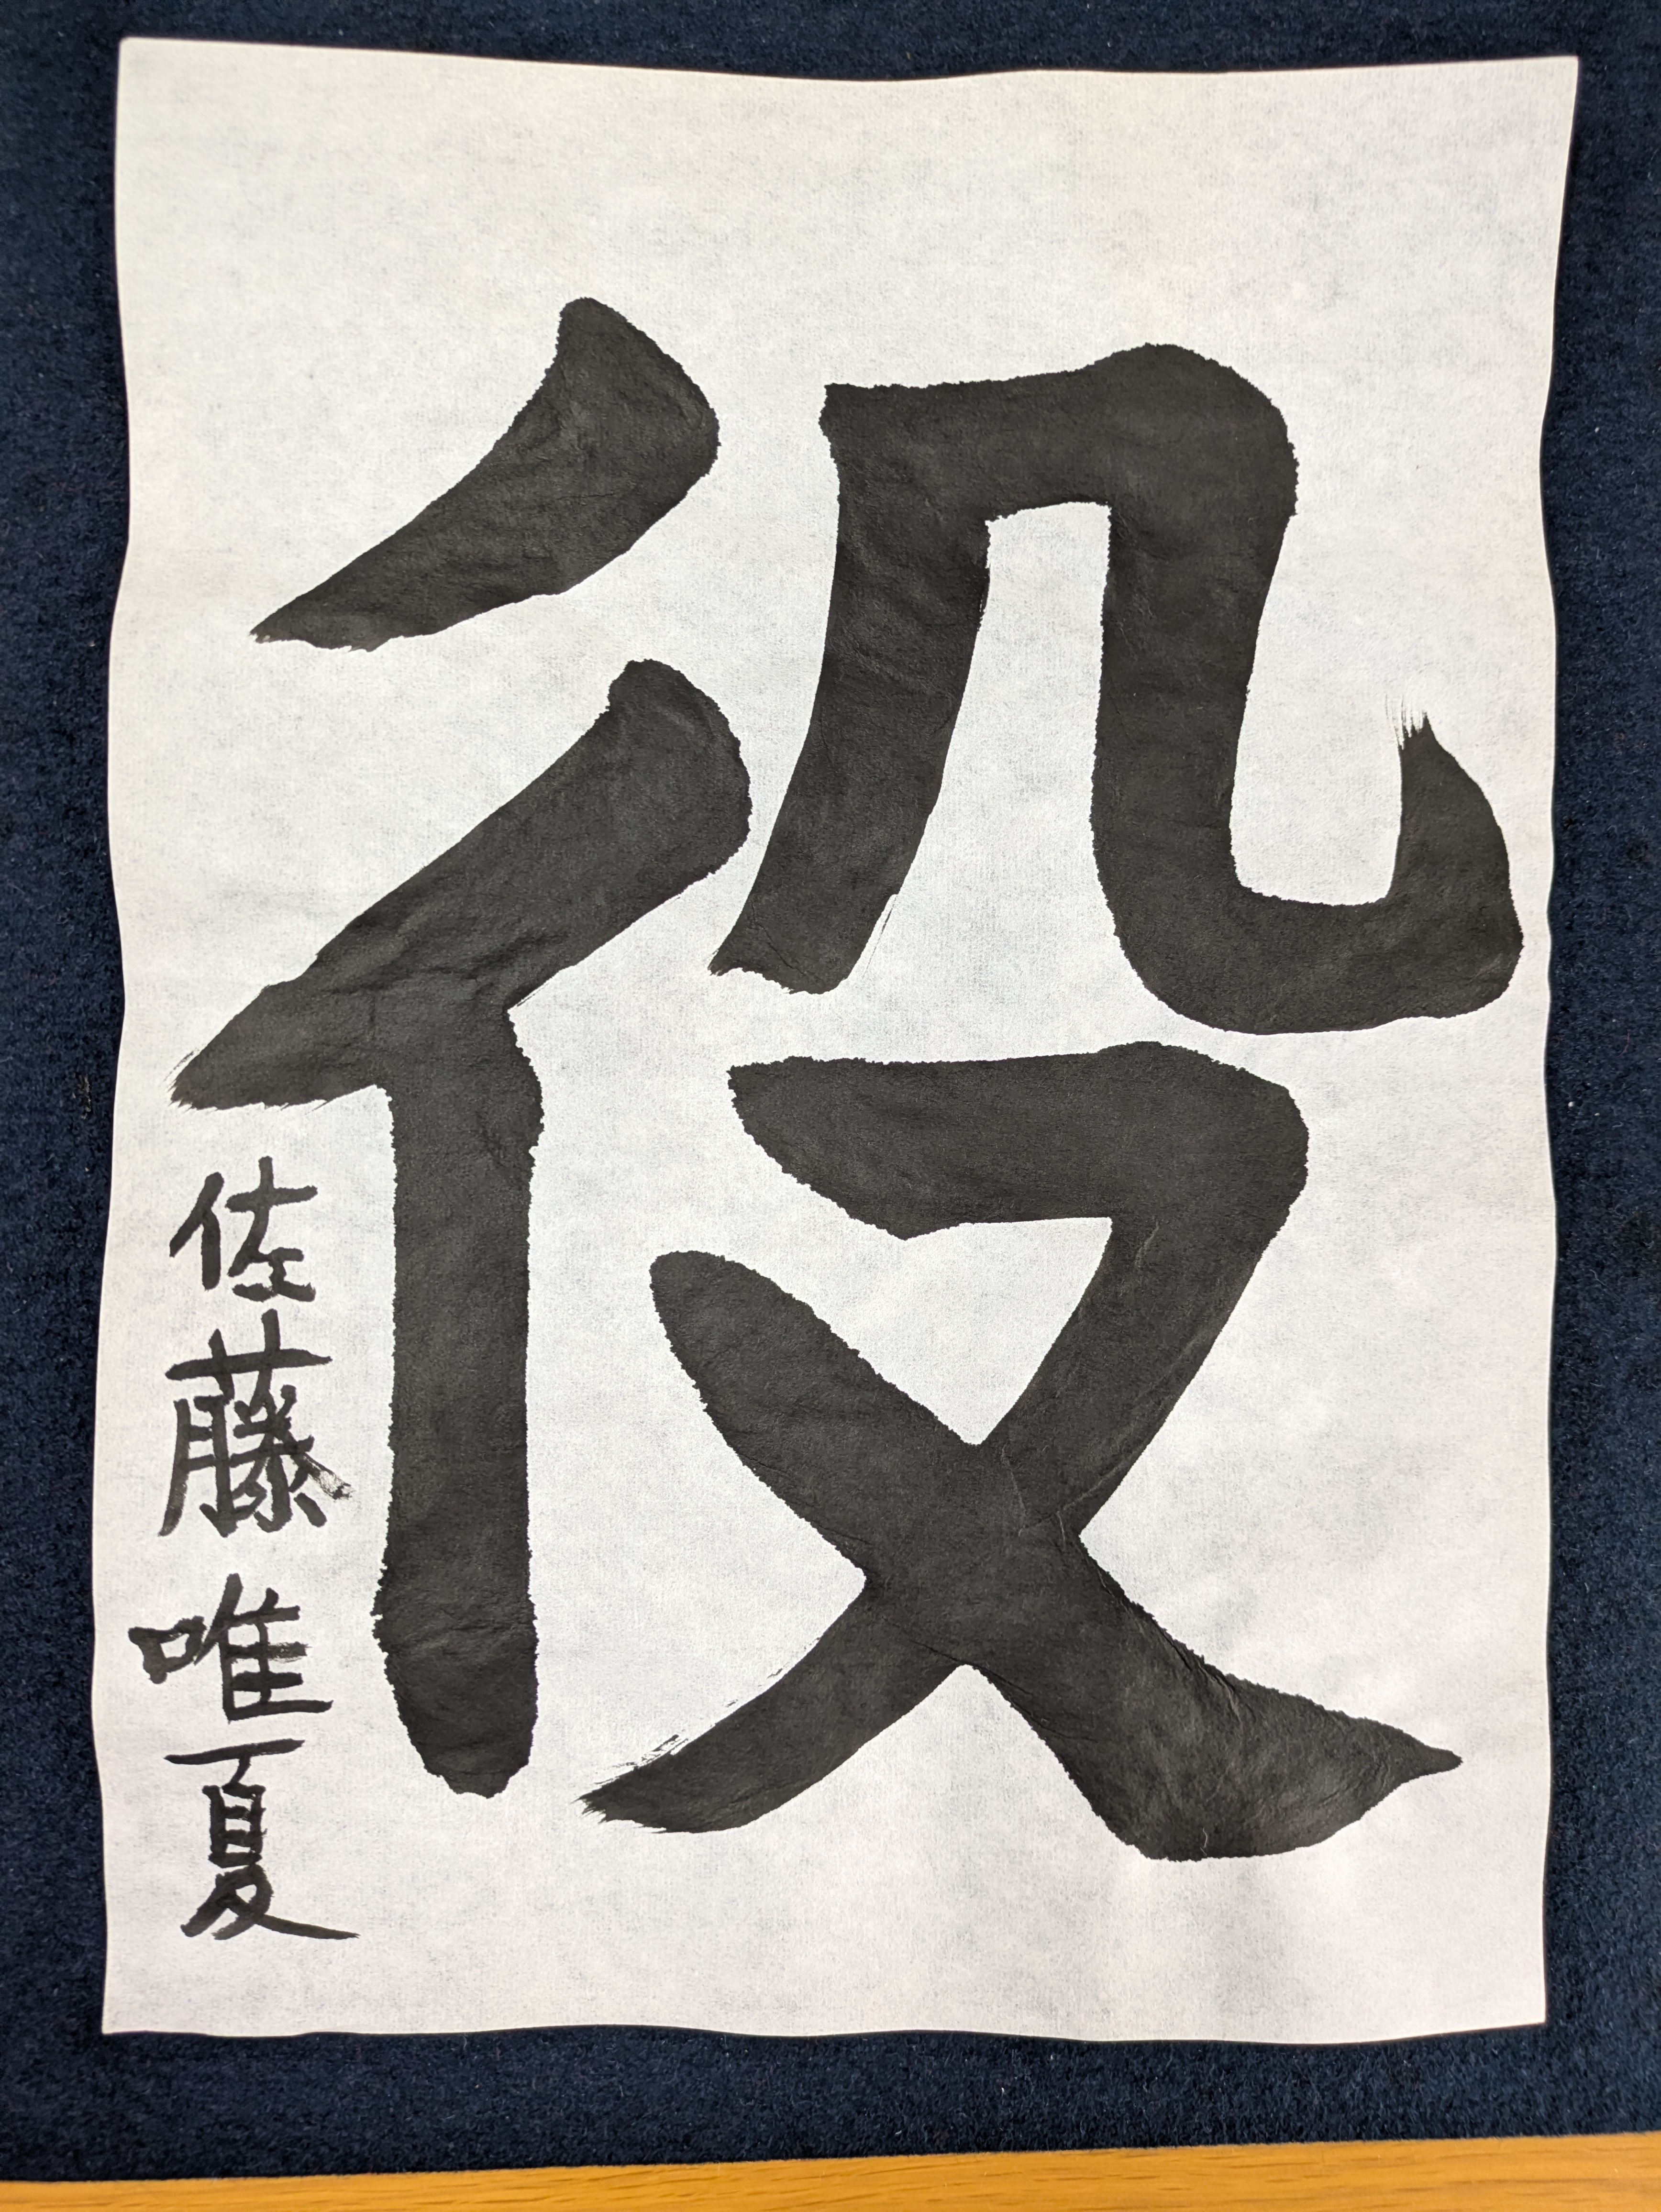 役
佐藤唯夏